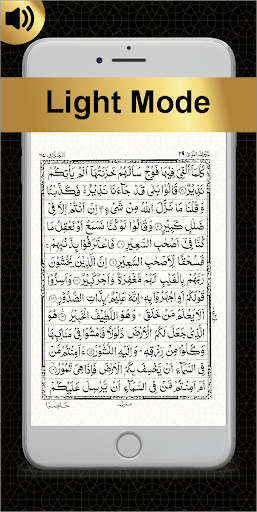 Light Mode
كُلَّمَآ اُلْقِيَ فِيْهَا فَوْجٌ سَاَلَهُمْ خَزَنَتُهَآ اَلَمْ يَاْتِكُمْ
نَذِيْرٌ ۝ قَالُوْا بَلٰى قَدْ جَآءَنَا نَذِيْرٌ ۙ فَكَذَّبْنَا
وَقُلْنَا مَا نَزَّلَ اللّٰهُ مِنْ شَيْءٍ ۚ اِنْ اَنْتُمْ اِلَّا فِيْ
ضَلٰلٍ كَبِيْرٍ ۝ وَقَالُوْا لَوْ كُنَّا نَسْمَعُ اَوْ نَعْقِلُ مَا
كُنَّا فِيْٓ اَصْحٰبِ السَّعِيْرِ ۝ فَاعْتَرَفُوْا بِذَنْۢبِهِمْ ۚ
فَسُحْقًا لِّاَصْحٰبِ السَّعِيْرِ ۝ اِنَّ الَّذِيْنَ يَخْشَوْنَ
رَبَّهُمْ بِالْغَيْبِ لَهُمْ مَّغْفِرَةٌ وَّاَجْرٌ كَبِيْرٌ ۝ وَاَسِرُّوْا
قَوْلَكُمْ اَوِ اجْهَرُوْا بِهٖ ؕ اِنَّهٗ عَلِيْمٌۢ بِذَاتِ الصُّدُوْرِ ۝
اَلَا يَعْلَمُ مَنْ خَلَقَ ؕ وَهُوَ اللَّطِيْفُ الْخَبِيْرُ ۝ هُوَ
الَّذِيْ جَعَلَ لَكُمُ الْاَرْضَ ذَلُوْلًا فَامْشُوْا فِيْ مَنَاكِبِهَا
وَكُلُوْا مِنْ رِّزْقِهٖ ؕ وَاِلَيْهِ النُّشُوْرُ ۝ ءَاَمِنْتُمْ مَّنْ
فِي السَّمَآءِ اَنْ يَّخْسِفَ بِكُمُ الْاَرْضَ فَاِذَا هِيَ تَمُوْرُ ۝
اَمْ اَمِنْتُمْ مَّنْ فِي السَّمَآءِ اَنْ يُّرْسِلَ عَلَيْكُمْ
حَاصِبًا